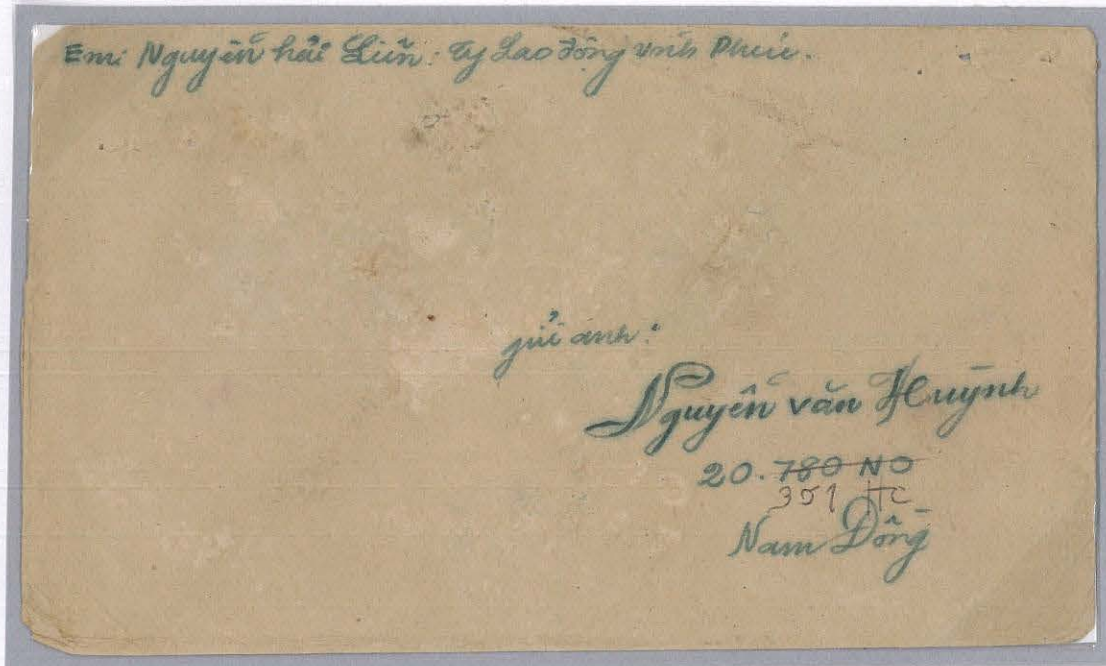 Em: Nguyễn hải Liên: Ty Lao động Vĩnh Phúc.
gửi anh:
Nguyễn văn Huỳnh
20. 780 NO
351 HC
Nam Đông